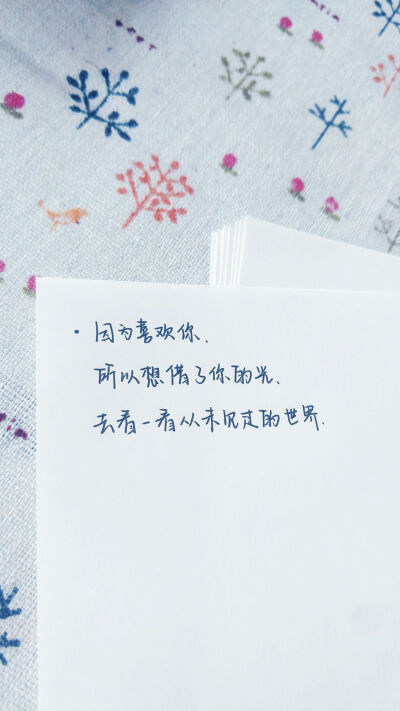 ·因为喜欢你、
所以想借了你的光、
去看一看从未见过的世界.